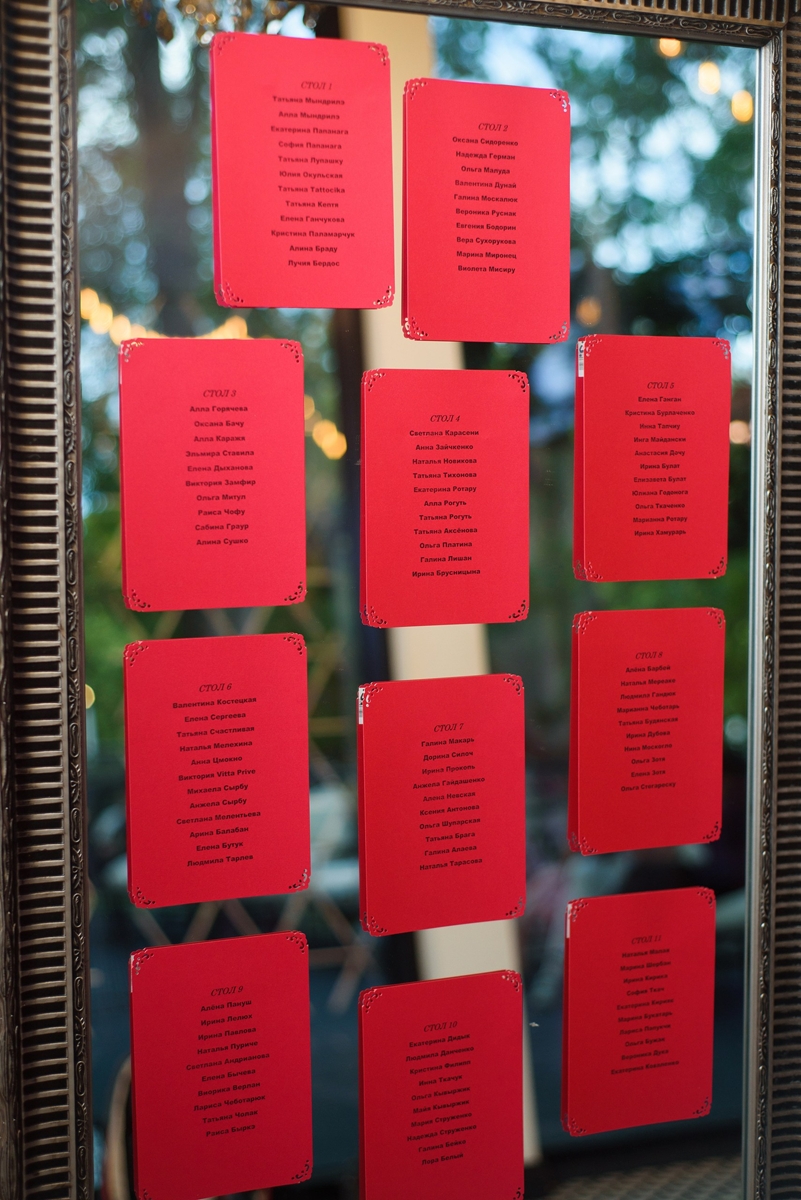 СТОЛ 1
Татьяна Мындрилэ
Алла Мындрилэ
Екатерина Папанага
София Папанага
Татьяна Лупашку
Юлия Окульская
Татьяна Tattocika
Татьяна Кептя
Елена Ганчукова
Кристина Паламарчук
Алина Браду
Лучия Бердос
СТОЛ 2
Оксана Сидоренко
Надежда Герман
Ольга Малуда
Валентина Дунай
Галина Москалюк
Вероника Руснак
Евгения Бодорин
Вера Сухорукова
Марина Миронец
Виолета Мисиру
СТОЛ 3
Алла Горячева
Оксана Бачу
Алла Каражя
Эльмира Ставила
Елена Дыханова
Виктория Замфир
Ольга Митул
Раиса Чофу
Сабина Граур
Алина Сушко
СТОЛ 4
Светлана Карасени
Анна Зайченко
Наталья Новикова
Татьяна Тихонова
Екатерина Ротару
Алла Рогуть
Татьяна Рогуть
Татьяна Аксёнова
Ольга Платина
Галина Лишан
Ирина Брусницына
СТОЛ 5
Елена Ганган
Кристина Бурлаченко
Инна Тапчиу
Инга Майдански
Анастасия Дачу
Ирина Булат
Елизавета Булат
Юлиана Годонога
Ольга Ткаченко
Марианна Ротару
Ирина Хамурарь
СТОЛ 6
Валентина Костецкая
Елена Сергеева
Татьяна Счастливая
Наталья Мелехина
Анна Цмокно
Виктория Vitta Privo
Михаела Сырбу
Анжела Сырбу
Светлана Мелентьева
Арина Балабан
Елена Бутук
Людмила Тарлев
СТОЛ 7
Галина Макарь
Дорина Силоч
Ирина Прокопь
Анжела Гайдашенко
Алена Невская
Ксения Антонова
Ольга Шупарская
Татьяна Брага
Галина Алаева
Наталья Тарасова
СТОЛ 8
Алёна Барбей
Наталья
Людмила
Марианна Чеботарь
Татьяна Будинская
Ирина Дубова
Нина
Ольга Зотя
Елена Зотя
Ольга
СТОЛ 9
Алёна Пануш
Ирина Лелюх
Ирина Павлова
Наталья Пуриче
Светлана Андрианова
Елена Бычева
Виорика Верлан
Лариса Чеботарюк
Татьяна Чолак
Раиса Бырка
СТОЛ 10
Екатерина Дидык
Людмила
Кристина Филипп
Инна Ткачук
Ольга Кывыржик
Майя Кывыржик
Мария Струженко
Надежда Струженко
Галина Бойко
Лара Белый
СТОЛ 11
Наталья
Марина Щербан
Ирина
София Ткач
Екатерина
Марина
Лариса
Ольга Бужак
Вероника
Екатерина Коваленко